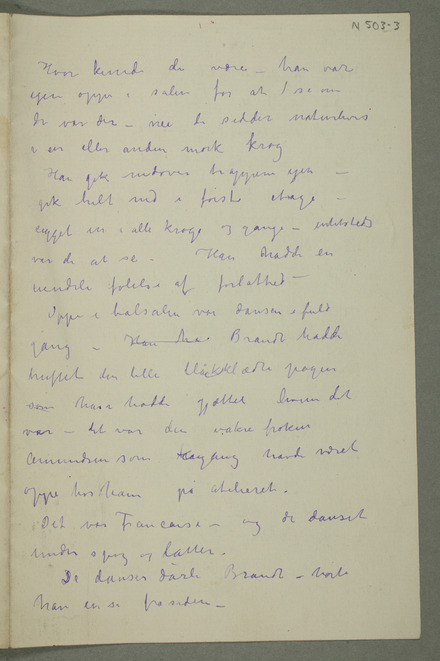 N 503-3
Hvor kunde de være – han var
igen oppe i salen for at se om
de var der – nei de sidder naturligvis
i en eller anden mørk krog
Han gik nedover trapperne igen –
gik helt ned i første etage –
kigget ind i alle kroge og gange – intetsteds
var de at se. Han hadde en
uendelig følelse af forlathed –
Oppe i balsalen var dansen i fuld
gang – Han ha Brandt hadde
truffet den lille blåklædte pagen
som han hadde gjættet hvem det
var – det var den vakre frøken
som engang havde været
oppe hos ham på atelieret.
Det var Francaise – og de danset
under spøg og latter.
De danser dårlig Brandt – hørte
han en si fra siden –